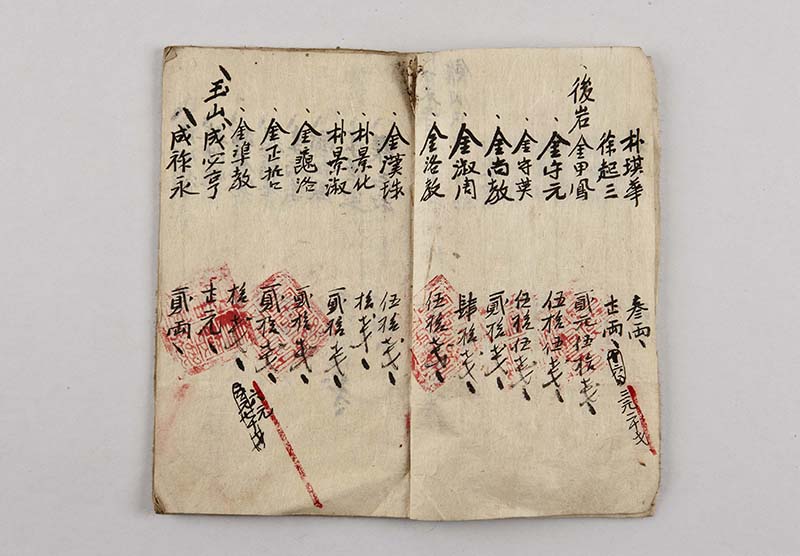 朴琪華 叁両
徐起三 壱両
三元二十戈
後岩 金甲鳳 貳元伍拾戔
金守元 伍拾伍戔
金守英 伍拾伍戔
金尚教 貳拾戔
金淑周 肆拾戔
金洛教 伍拾戔
金漢珠 伍拾戔
朴景化 拾戔
朴景淑 貳拾戔
金龜洛 貳拾戔
金正哲 貳拾戔
金準教 拾戔
六元
玉山 成心亨 壱元
成祚永 貳両